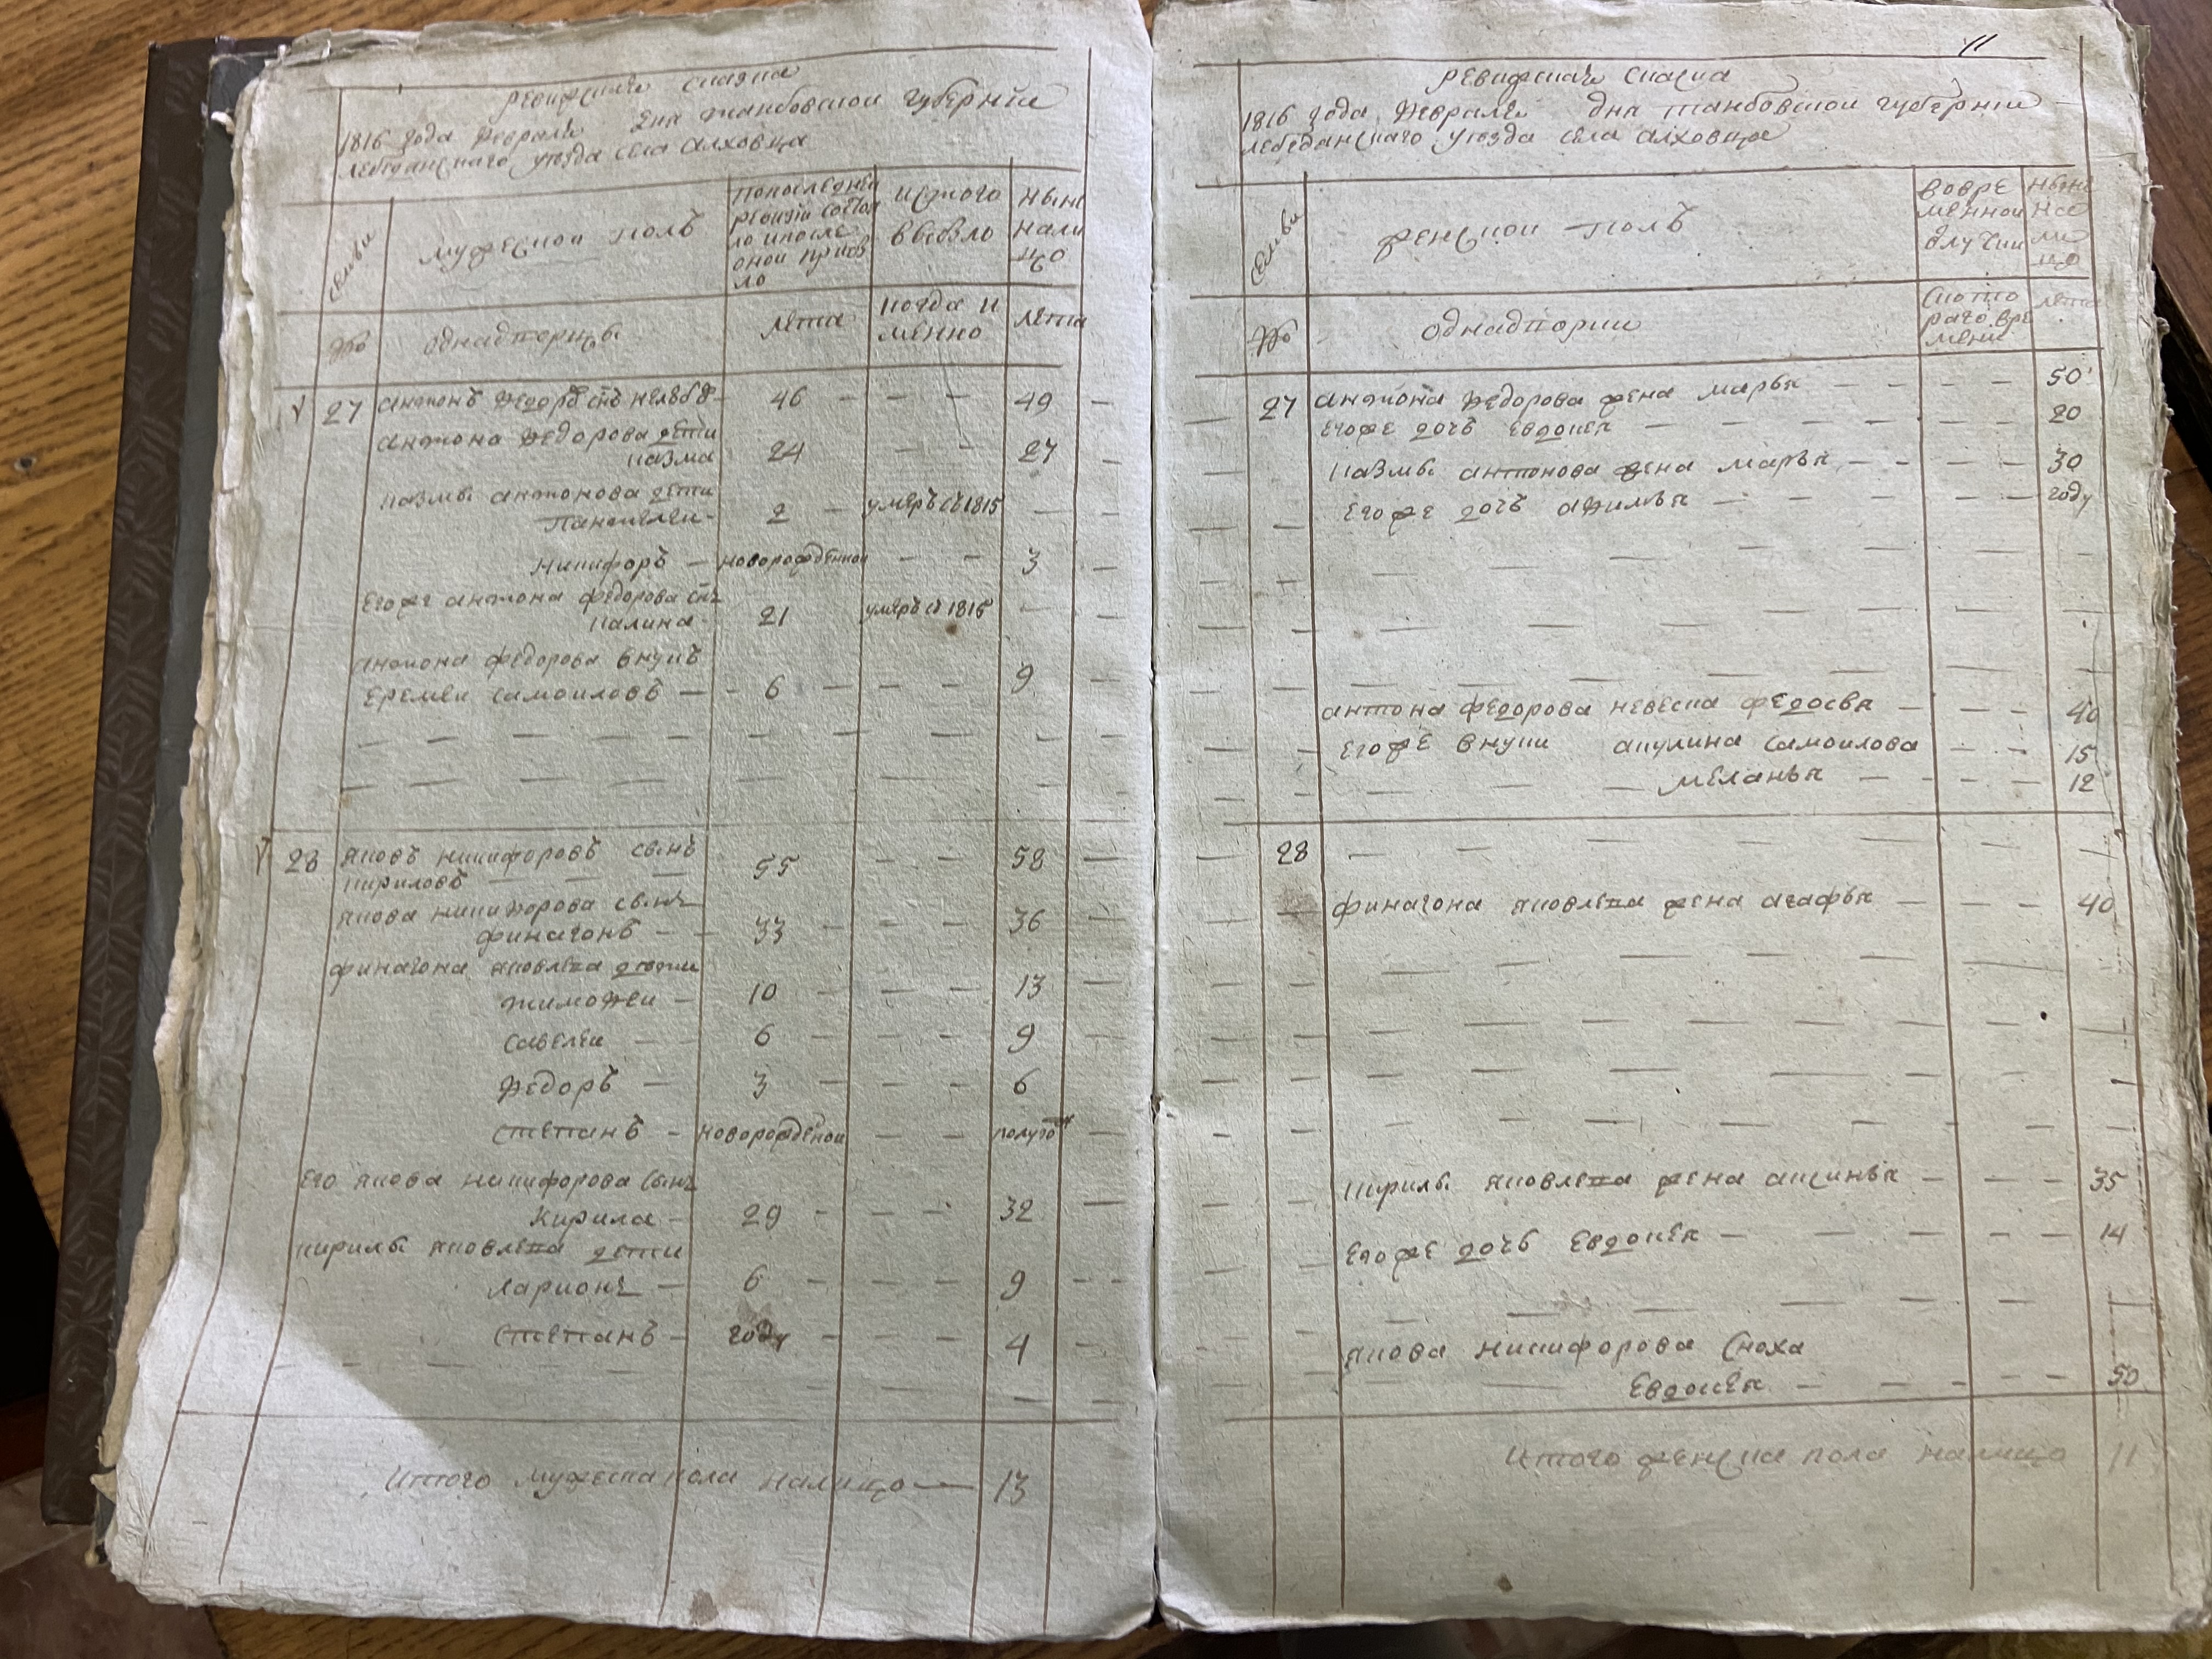 ревижская сказка
1816 года февраля дня танбовской губернiи
лебедянскаго уезда села алховца
семьи
мужескои полъ
попоследнеи
ревизiи состоя
ло ипосле
оной прибы
ло
истого
выбыло
ныне
нали
цо
№
однадворцы
лета
когда и
менно
лета
27 антонъ федоровъ сынъ 46 — — — 49
антона федорова дети
казма 24 — — 27
казмы антонова дети
Пантелеи 2 — умеръ въ 1815 —
никифоръ — новорожденнои — — 3
егоже антона федорова сынъ
калина 21 умеръ въ 1815 —
антона федорова внукъ
еремеи самоиловъ — 6 — — — 9
28 яковъ никифоровъ сынъ
кириловъ 55 — — 58
якова никифорова сынъ
финагонъ — 33 — — — 36
финагона яковлева дети
тимофеи — 10 — — — 13
савелеи — 6 — — — 9
федоръ — 3 — — — 6
степанъ — новорожденои — — полуго
его якова никифорова сынъ
кирила — 29 — — — 32
кирилы яковлева дети
ларионъ — 6 — — — 9
степанъ — году — — — 4
итого мужеска пола налицо — 13
11
ревижская сказка
1816 года февраля дня танбовской губернiи
лебеданскаго уезда села алховца
семьи
женскои полъ
вовре
меннои
отлучки
ныне
на
ли
цо
№
однадворки
скотто
раго вре
мени
лета
27 антона федорова жена марья — — — — 50
егоже дочь евдокея — — — — 20
казмы антонова жена марья — — — 30
егоже дочь афимья — — — году
антона федорова невеска федосья — — — 40
егоже внуки акулина самоилова 15
меланья — — — 12
28
финагона яковлева жена агафья — — — 40
кирилы яковлева жена аксинья — — — 35
егоже дочь евдокея — — — 14
якова никифорова сноха
евдокея — — — 50
итого женска пола налицо 11